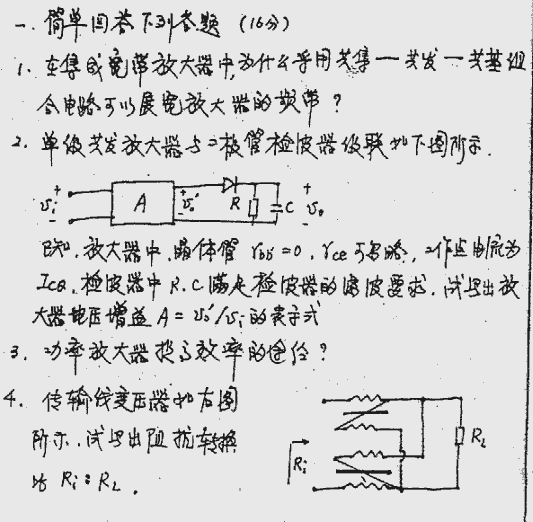 一、简单回答下列各题 (16分)
1、在集成宽带放大器中,为什么采用共集一共发一共基组
合电路可以展宽放大器的频带?
2、单级共发放大器与二极管检波器级联如下图所示.
υi + - A + υo' - R C + υo -
已知,放大器中,晶体管 rbb'=0, rce 可忽略,工作点电流为
ICQ,检波器中 R、C 满足检波器的滤波要求,试写出放
大器电压增益 A = υo'/υi 的表示式
3、功率放大器提高效率的途径?
4、传输线变压器如右图
所示,试写出阻抗转换
比 Ri:RL.
Ri
RL